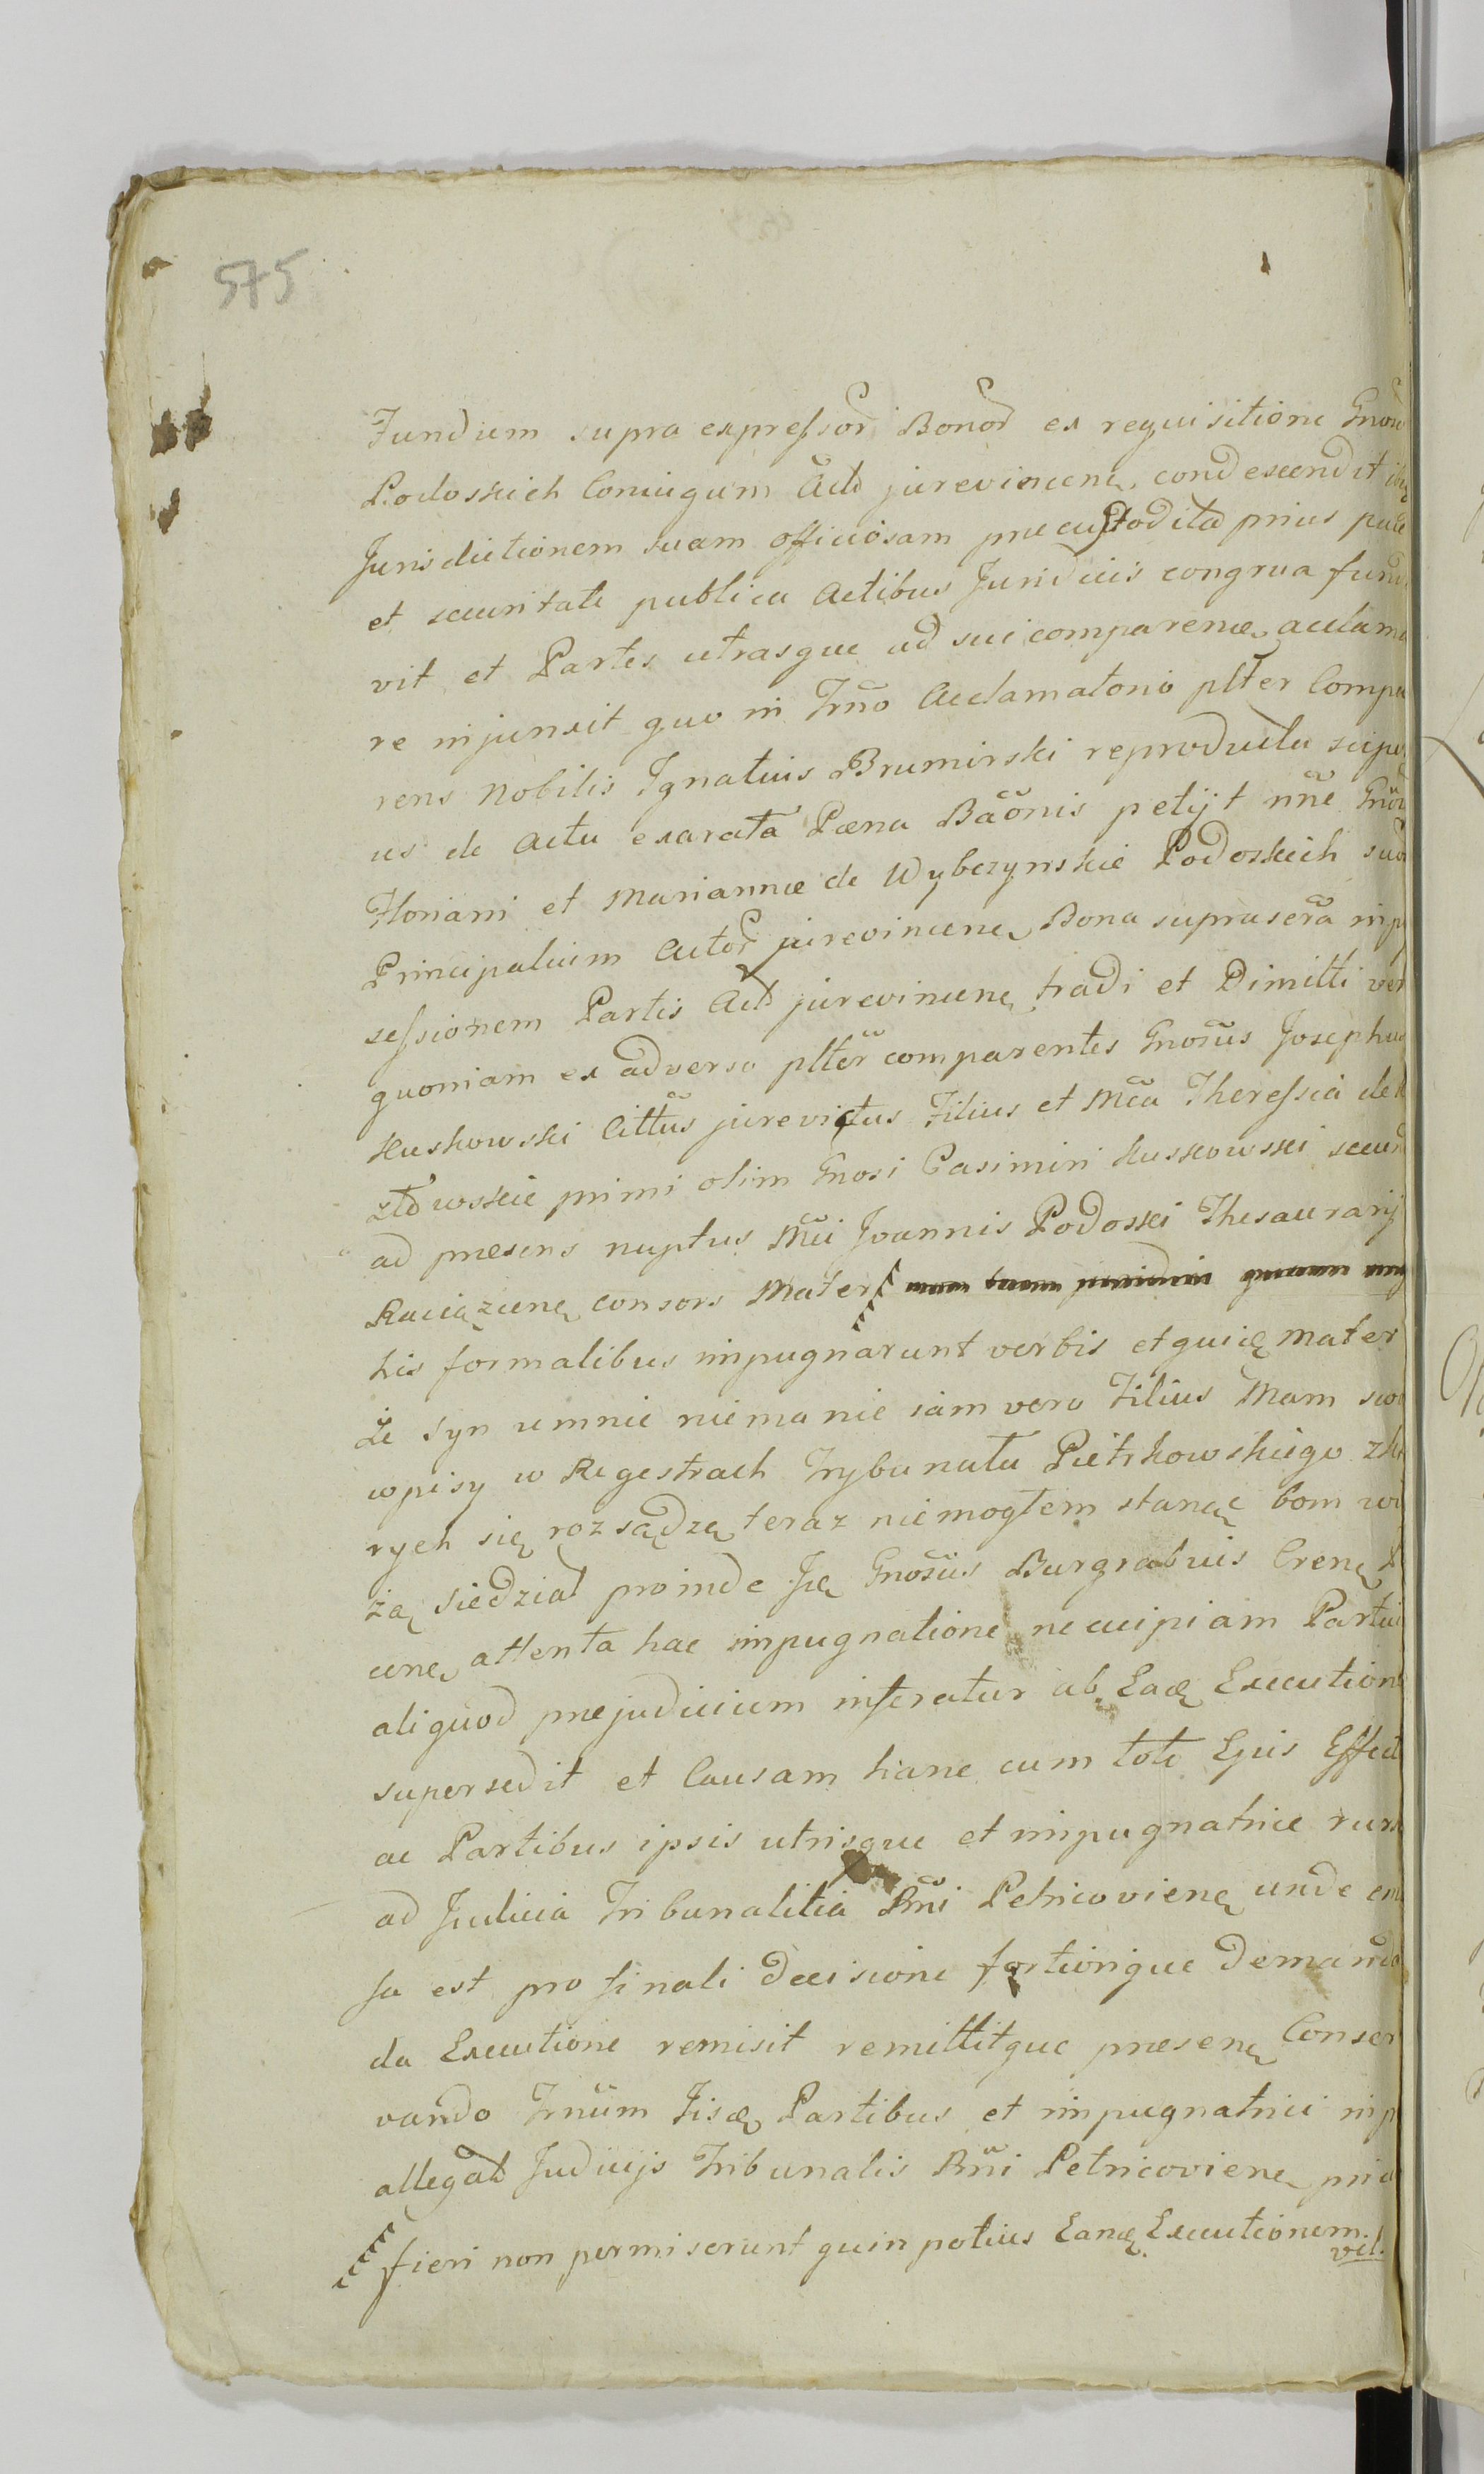 575
Fundum supra expressor Bonor ex requisitione Gnor
Podoskich Coniugum Act jurevincen. condescendit
Jurisdictionem suam officiosam praecustodita prius
et securitate publica Actibus Juridicis congrua fund
vit et Partes utrasque ad sui comparen. acclama
re injunxit quo in Trno Acclamatorio plter Compa
rens Nobilis Ignatius Brumirski reproducta
us de actu exarata Pœna Baonis petijt nne Gnor
Floriani et Mariannæ de Wybczynskie Podoskich suor
Principalium Actor jurevincen. Bona suprascra in p
sessionem Partis Act jurevincen. tradi et Dimitti ver
quoniam ex adverso plter comparentes Gnosus Josephus
Kuskowski Cittus jurevictus Filius et Mca Theressia de
primi olim Gnosi Casimiri Kuskowski secund
ad præsens nuptus Mci Joannis Podoski Thesaurarij
Raciązene. consors Mater
his formalibus impugnarunt verbis et quidę Mater
Że Syn u mnie niema nic iam vero Filius Mam swo
wpisy w Regestrach Trybunału Pietrkowskiego z kt
rych się rozsądzę teraz niemogłem stanąć bom w
żą siedział proinde Idę Gnosus Burgrabius Cren.
cen. attenta hac impugnatione ne cuipiam Partiu
aliquod præjudicium inferatur ab Eadę Execution
supersedit et Causam hanc cum toto Ejus Effect
ac Partibus ipsis utrisque et impugnatrice rurs
ad Judicia Tribunalitia Rni Petricovien. unde
sa est pro finali decisione fortiorique demand
da Executione remisit remittitque præsen. Conser
vando Trnum Iisdę Partibus et impugnatrici in p
allegat Judicijs Tribunalis Rni Petricovien.
fieri non permiserunt quin potius Eandę Executionem.
vel.